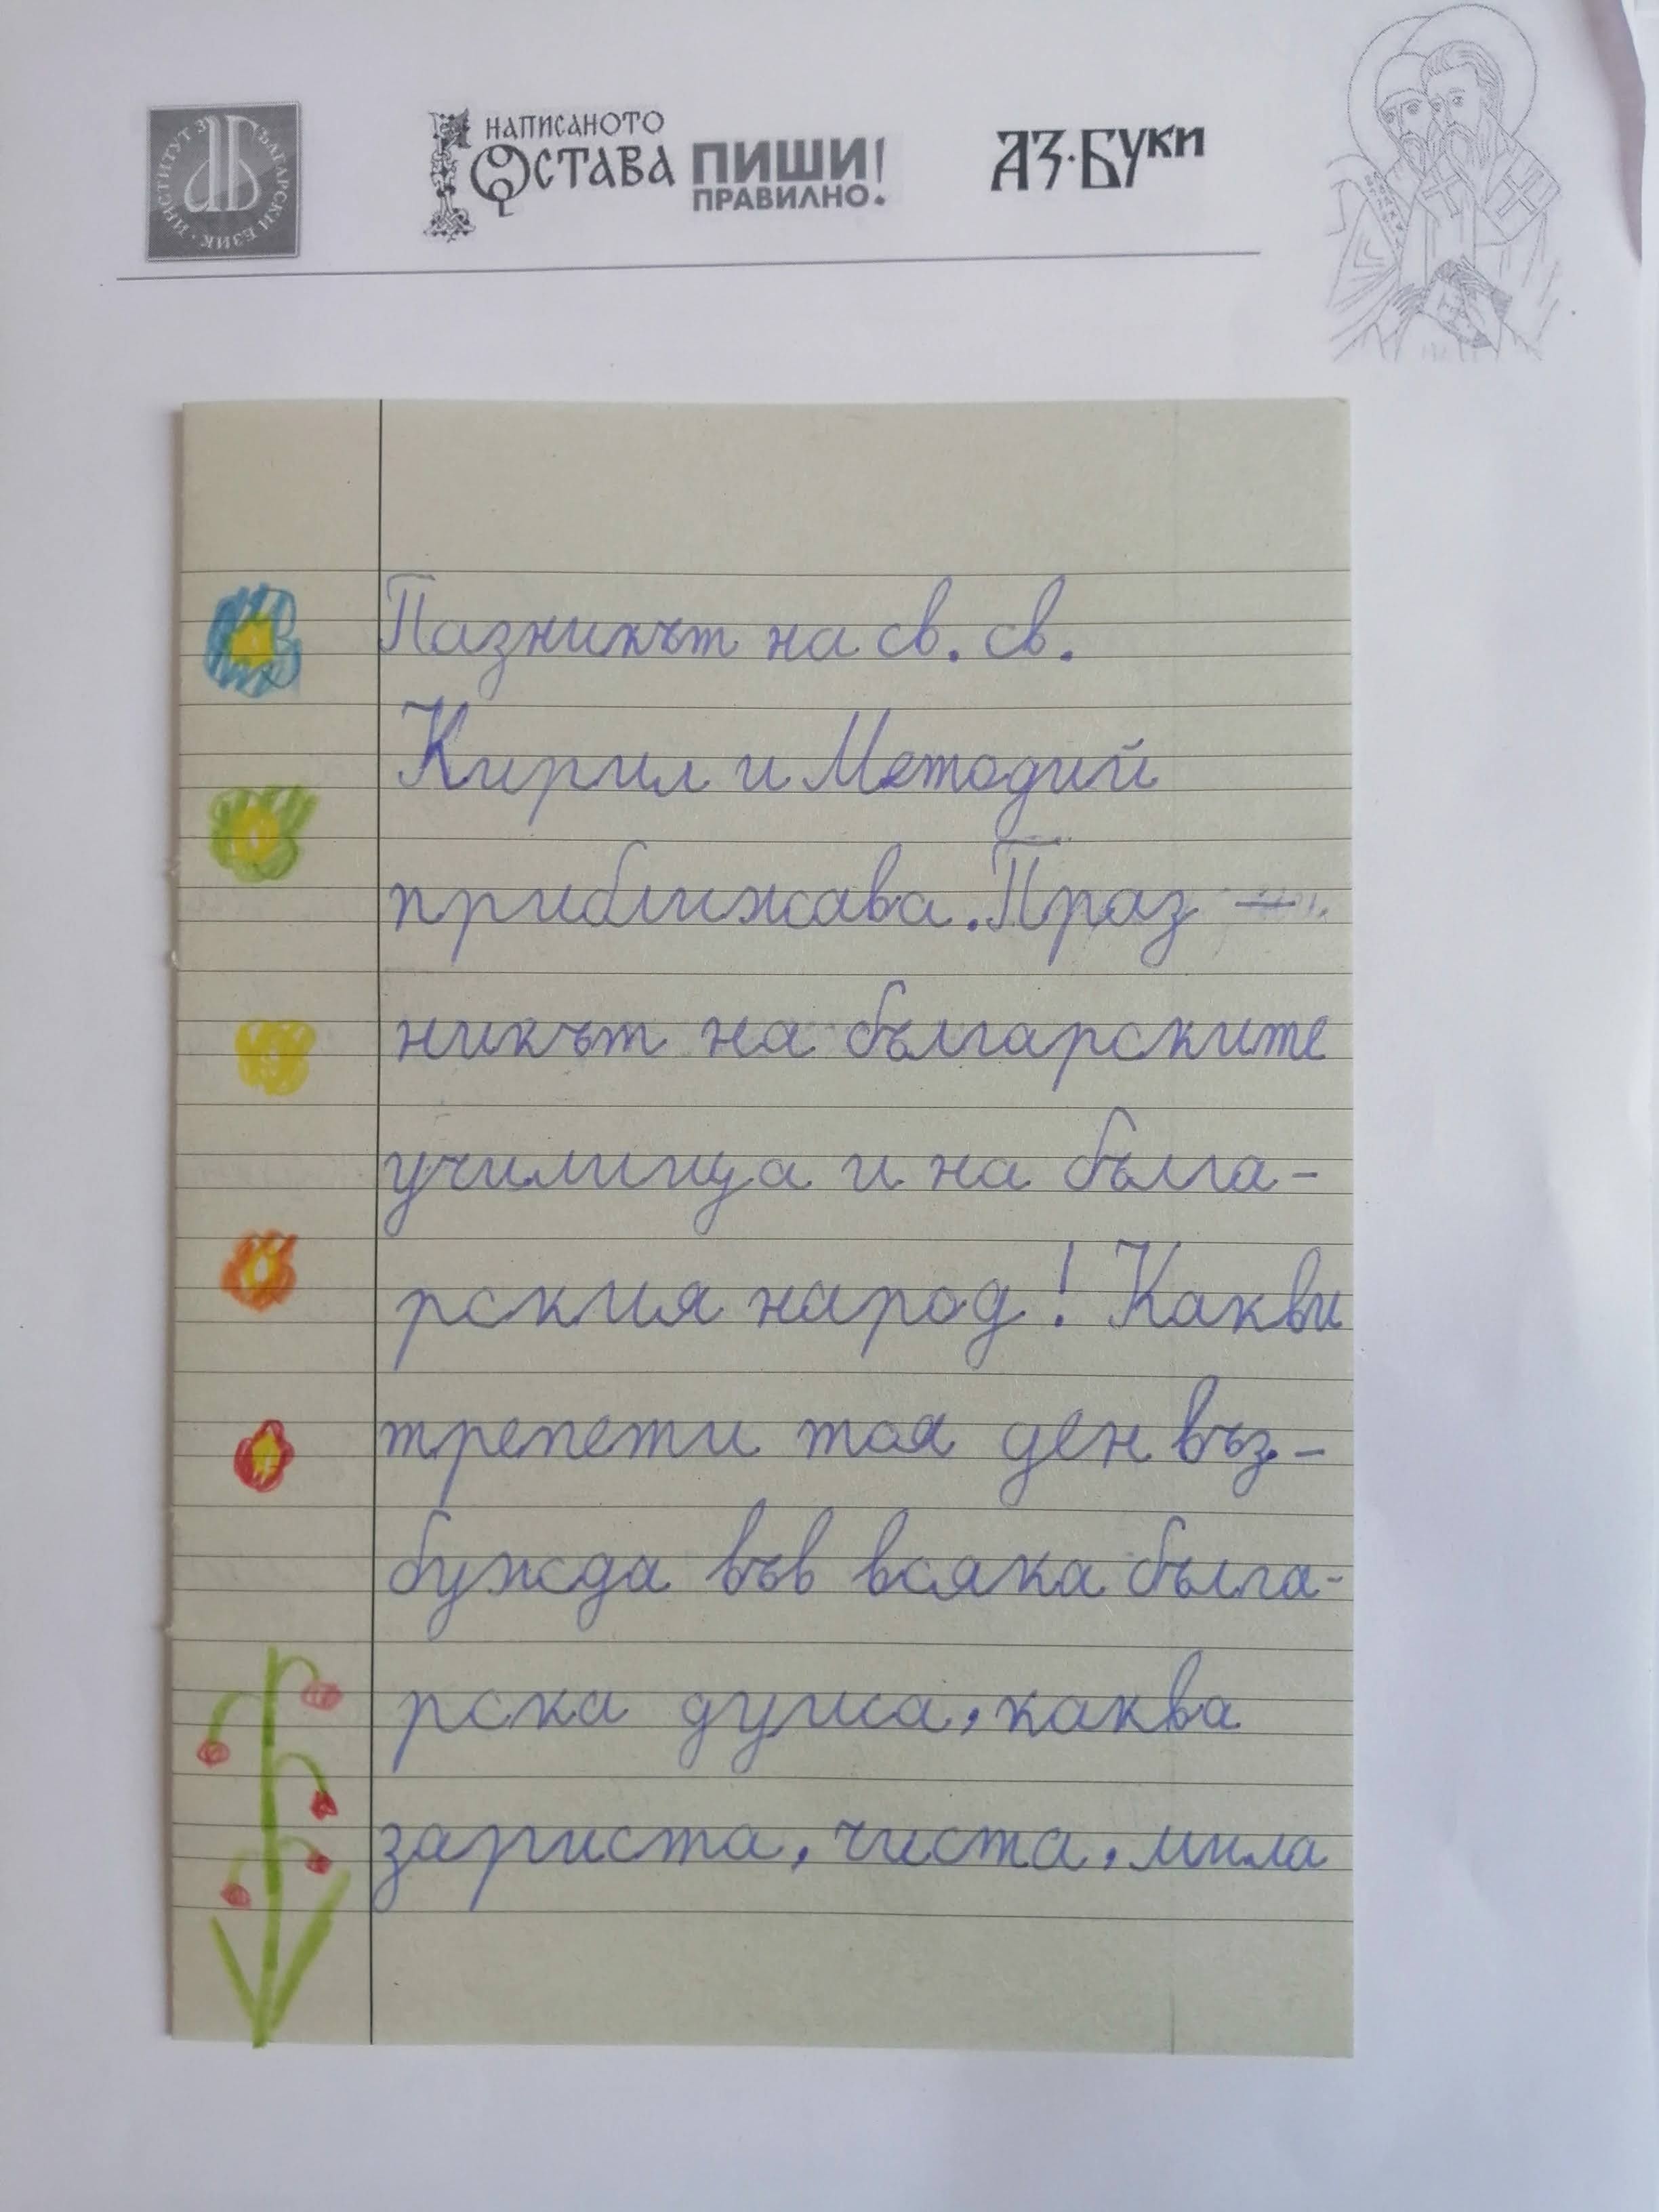 ИНСТИТУТ ЗА БЪЛГАРСКИ ЕЗИК
НАПИСАНОТО
ОСТАВА
ПИШИ!
ПРАВИЛНО.
АЗ·БУКИ
Пазникът на св. св.
Кирил и Методий
приближава. Праз-
никът на българските
училища и на бълга-
рския народ! Какви
трепети тоя ден въз-
бужда във всяка бълга-
рска душа, каква
зариста, чиста, мила